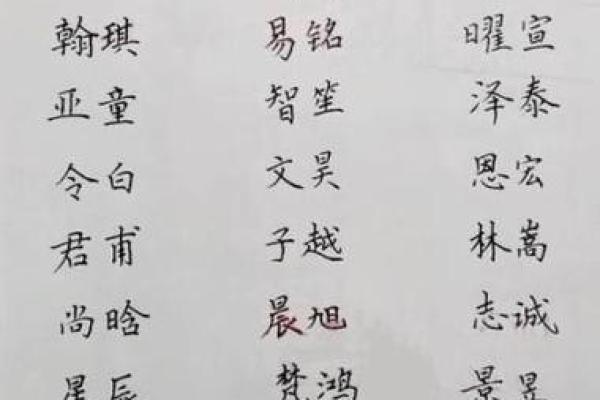 翰琪 易铭 曜宣
亚童 智笙 泽泰
令白 文昊 恩宏
君甫 子越 林嵩
尚晗 晨旭 志诚
星辰 梵鸿 景昱